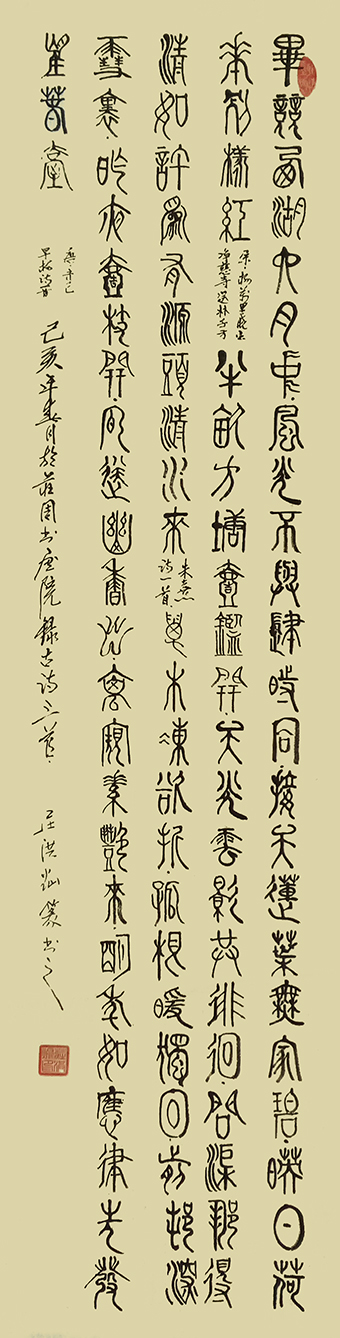 畢競西湖六月中風光不與肆時同接天蓮葉無窮碧映日荷
花別樣紅
宋·楊萬里曉出
淨慈寺送林子方
半畝方塘壹鑑開天光雲影共徘徊問渠那得
清如許為有源頭清水來
朱熹
詩一首
萬木凍欲折孤根暖獨回前村深
雪裏昨夜壹枝開風遞幽香出禽窺素艷來明年如應律先發
望春臺
唐·齊己
早梅詩
己亥年春月於莊周書畫院錄古詩三首
莊洪篆書之